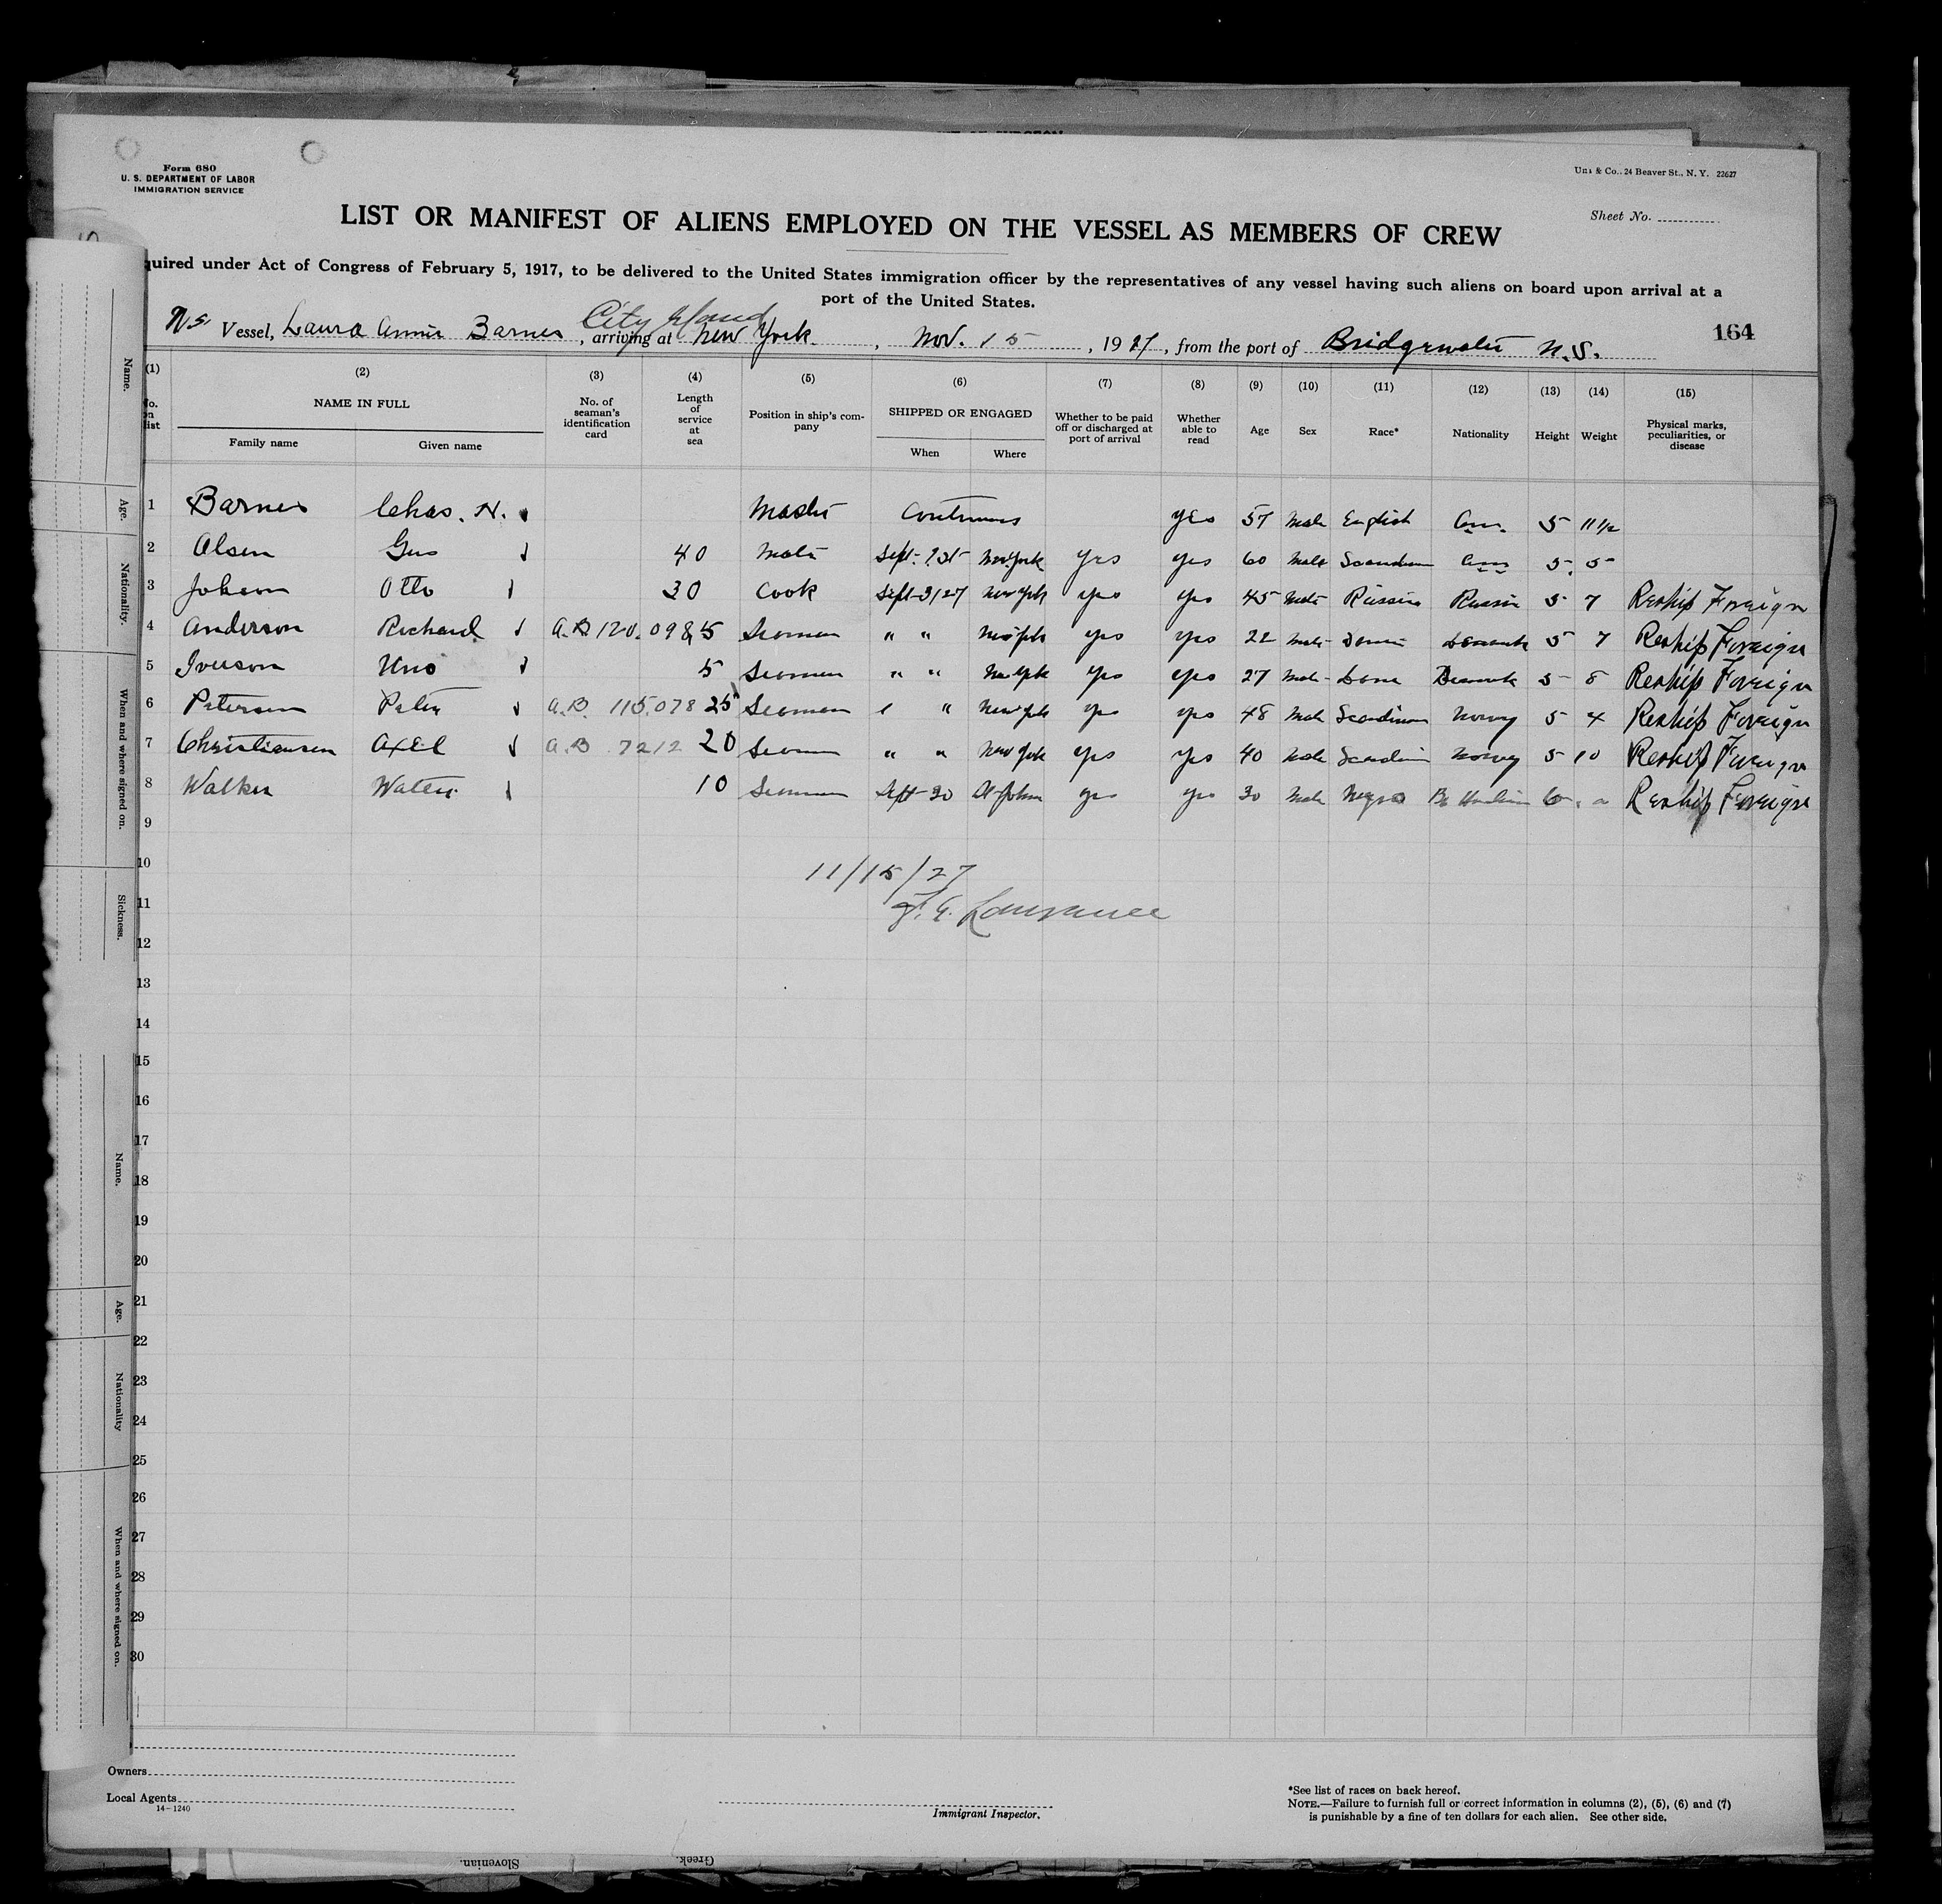 Form 680
U. S. DEPARTMENT OF LABOR
IMMIGRATION SERVICE
& Co., 24 Beaver St., N. Y. 22627
Sheet No.
LIST OR MANIFEST OF ALIENS EMPLOYED ON THE VESSEL AS MEMBERS OF CREW
quired under Act of Congress of February 5, 1917, to be delivered to the United States immigration officer by the representatives of any vessel having such aliens on board upon arrival at a
port of the United States.
City Island
Vessel, Laura Annie Barnes, arriving at New York, Nov. 15, 1927, from the port of Bridgewater N.S.
164
(1) (2) (3) (4) (5) (6) (7) (8) (9) (10) (11) (12) (13) (14) (15)
No. on list
NAME IN FULL
Family name Given name
No. of seaman's identification card
Length of service at sea
Position in ship's company
SHIPPED OR ENGAGED
When Where
Whether to be paid off or discharged at port of arrival
Whether able to read
Age
Sex
Race*
Nationality
Height
Weight
Physical marks, peculiarities, or disease
1 Barnes Chas. H. Master Continuous yes 57 Male English Am. 5 11½
2 Olsen Gus 40 Mate Sept. New York yes yes 60 Male Scandinavian Am 5 5
3 Johnson Otto 30 Cook Sept 3/27 New York yes yes 45 Male Russian Russia 5 7 Reship Foreign
4 Anderson Richard A.B 120.098 5 Seaman " " New York yes yes 22 Male Denmark 5 7 Reship Foreign
5 Iverson Uno 5 Seaman " " New York yes yes 27 Male Dane Denmark 5 8 Reship Foreign
6 Petersen Peter A.B. 115.078 25 Seaman " New York yes yes 48 Male Scandinavian Norway 5 4 Reship Foreign
7 Christiansen Axel A.B 7212 20 Seaman " " New York yes yes 40 Male Scandinavian Norway 5 10 Reship Foreign
8 Walker 10 Seaman Sept 30 St John yes yes 30 Male Negro 6 Reship Foreign
9
10
11/15/27
11
Lawrance
12
13
14
15
16
17
18
19
20
21
22
23
24
25
26
27
28
29
30
Name.
Age.
Nationality.
When and where signed on.
Sickness.
Name.
Age.
Nationality
When and where signed on.
Owners
Local Agents
14-1240
Immigrant Inspector.
*See list of races on back hereof.
NOTE.—Failure to furnish full or correct information in columns (2), (5), (6) and (7)
is punishable by a fine of ten dollars for each alien. See other side.
Slovenian.
Greek.